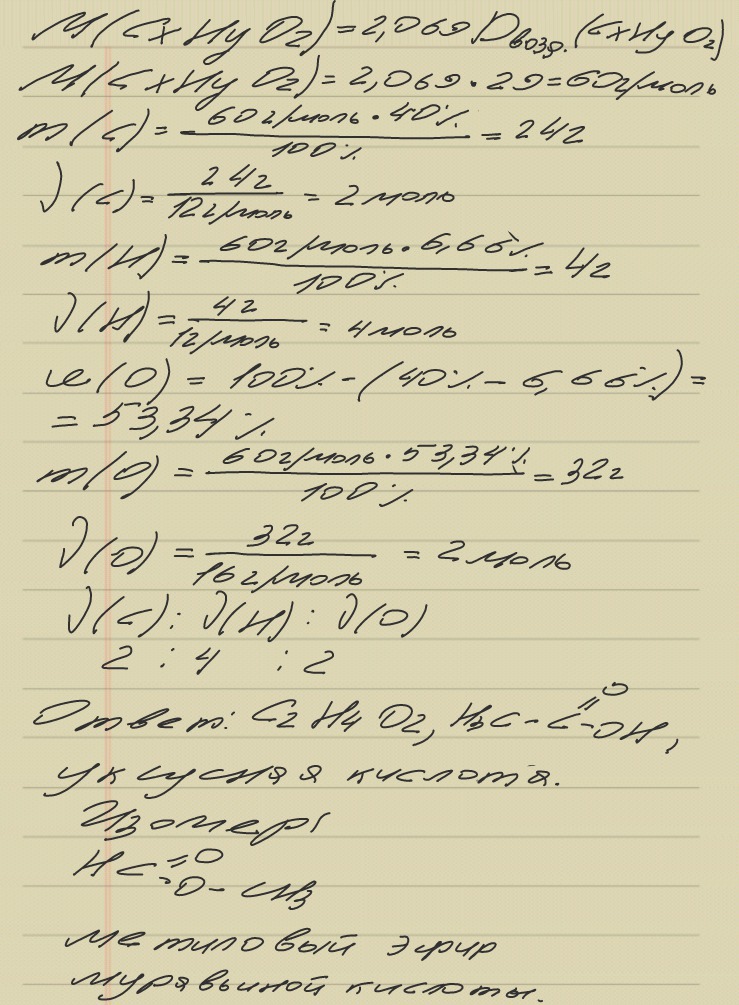 M(CxHyOz) = 2,069 Dвозд. (CxHyOz)
M(CxHyOz) = 2,069 · 29 = 60г/моль
m(C) = 60г/моль · 40% / 100% = 24г
ν(C) = 24г / 12г/моль = 2 моль
m(H) = 60г/моль · 6,66% / 100% = 4г
ν(H) = 4г / 1г/моль = 4 моль
ω(O) = 100% - (40% - 6,66%) =
= 53,34%
m(O) = 60г/моль · 53,34% / 100% = 32г
ν(O) = 32г / 16г/моль = 2 моль
ν(C) : ν(H) : ν(O)
2 : 4 : 2
Ответ: C2H4O2, H3C-C=O-OH,
уксусная кислота.
Изомер:
HC=O-O-CH3
метиловый эфир
муравьиной кислоты.